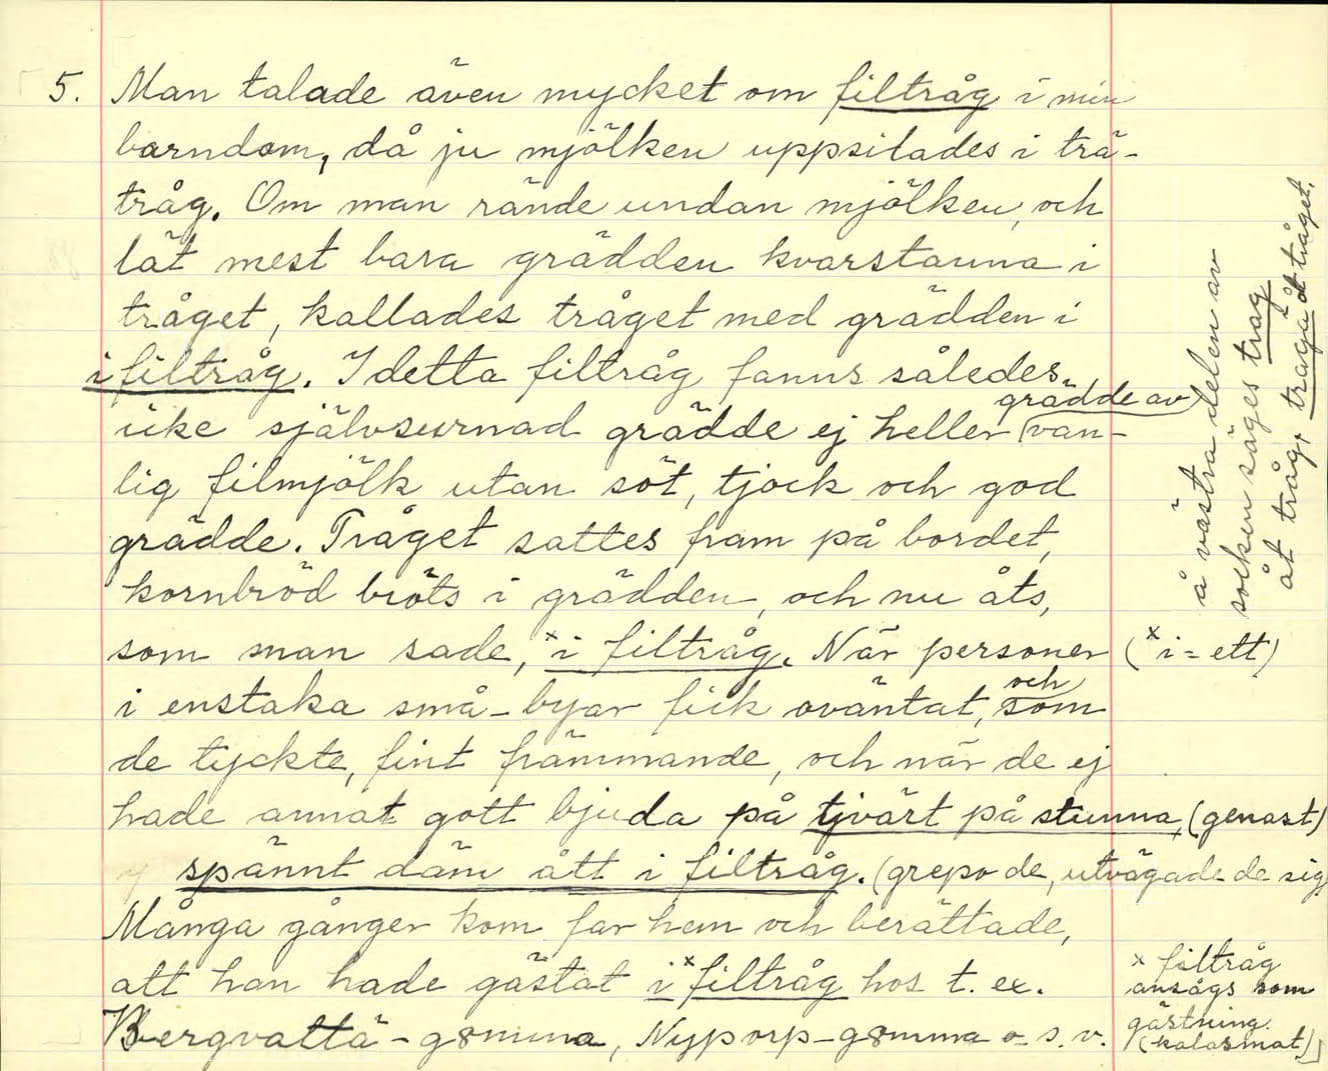 5. Man talade även mycket om filtråg i min
barndom, då ju mjölken uppsilades i trä-
tråg. Om man rände undan mjölken, och
lät mest bara grädden kvarstanna i
tråget, kallades tråget med grädden i
i filtråg. I detta filtråg fanns således
grädde av
icke självsurnad grädde ej heller van-
lig filmjölk utan söt, tjock och god
grädde. Tråget sattes fram på bordet,
kornbröd bröts i grädden, och nu åts,
som man sade, x i filtråg. När personer (x i = ett)
i enstaka små-byar fick oväntat, och som
de tyckte, fint främmande, och när de ej
hade annat gott bjuda på tjvärt på stunna, (genast)
spännt däm ått i filtråg. (grepo de, utvägade de sig
Många gånger kom far hem och berättade,
att han hade gästat i x filtråg hos t. ex.
Bergvattä-gømma, Nyporp-gømma o. s. v.
å västra delen av
socken säges trag
åt tråg, traga åt tråget.
x filtråg
ansågs som
gästning.
(kalasmat)]